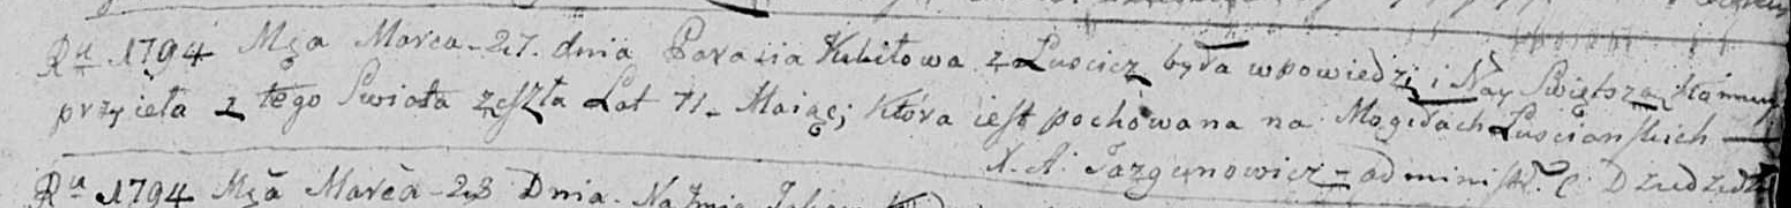 Rᵘ 1794 Mça Marca 27. dnia Parasia Kubiłowa z Luscicz była wpowiedzi i Nay Swiętszą kommu
przyieła z tego Swiata zeszła Lat 71. Maiącej która iest pochowana na Mogiłach Luscianskich —
X. A. Jazgunowicz - administr. C.
Rᵘ 1794 Mça Marca 28 Dnia.